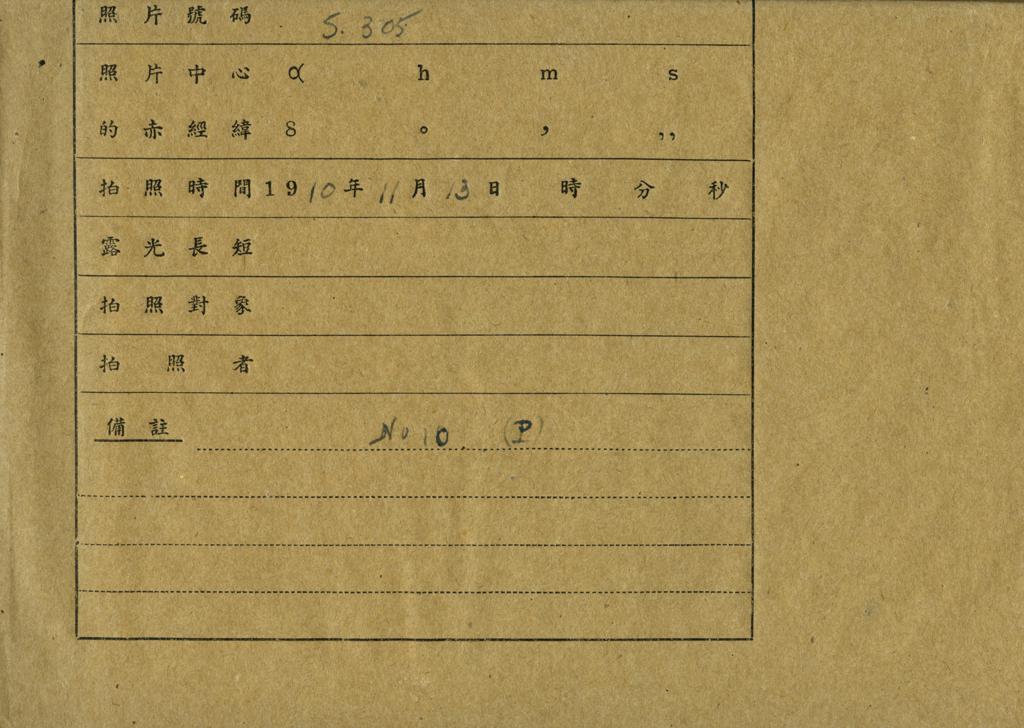 照片號碼 S. 305
照片中心 α h m s
的赤經緯 δ ° ′ ″
拍照時間 1910年11月13日 時 分 秒
露光長短
拍照對象
拍照者
備註 No 10. (P)